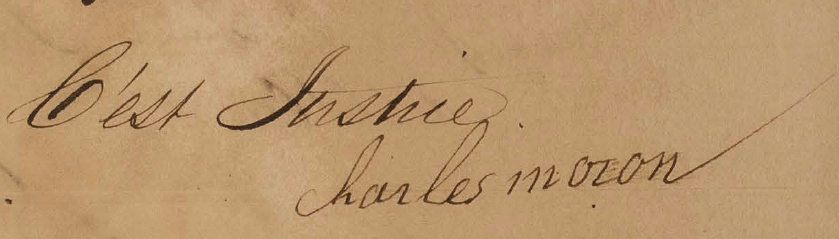 C'est Justice.
Charles moron